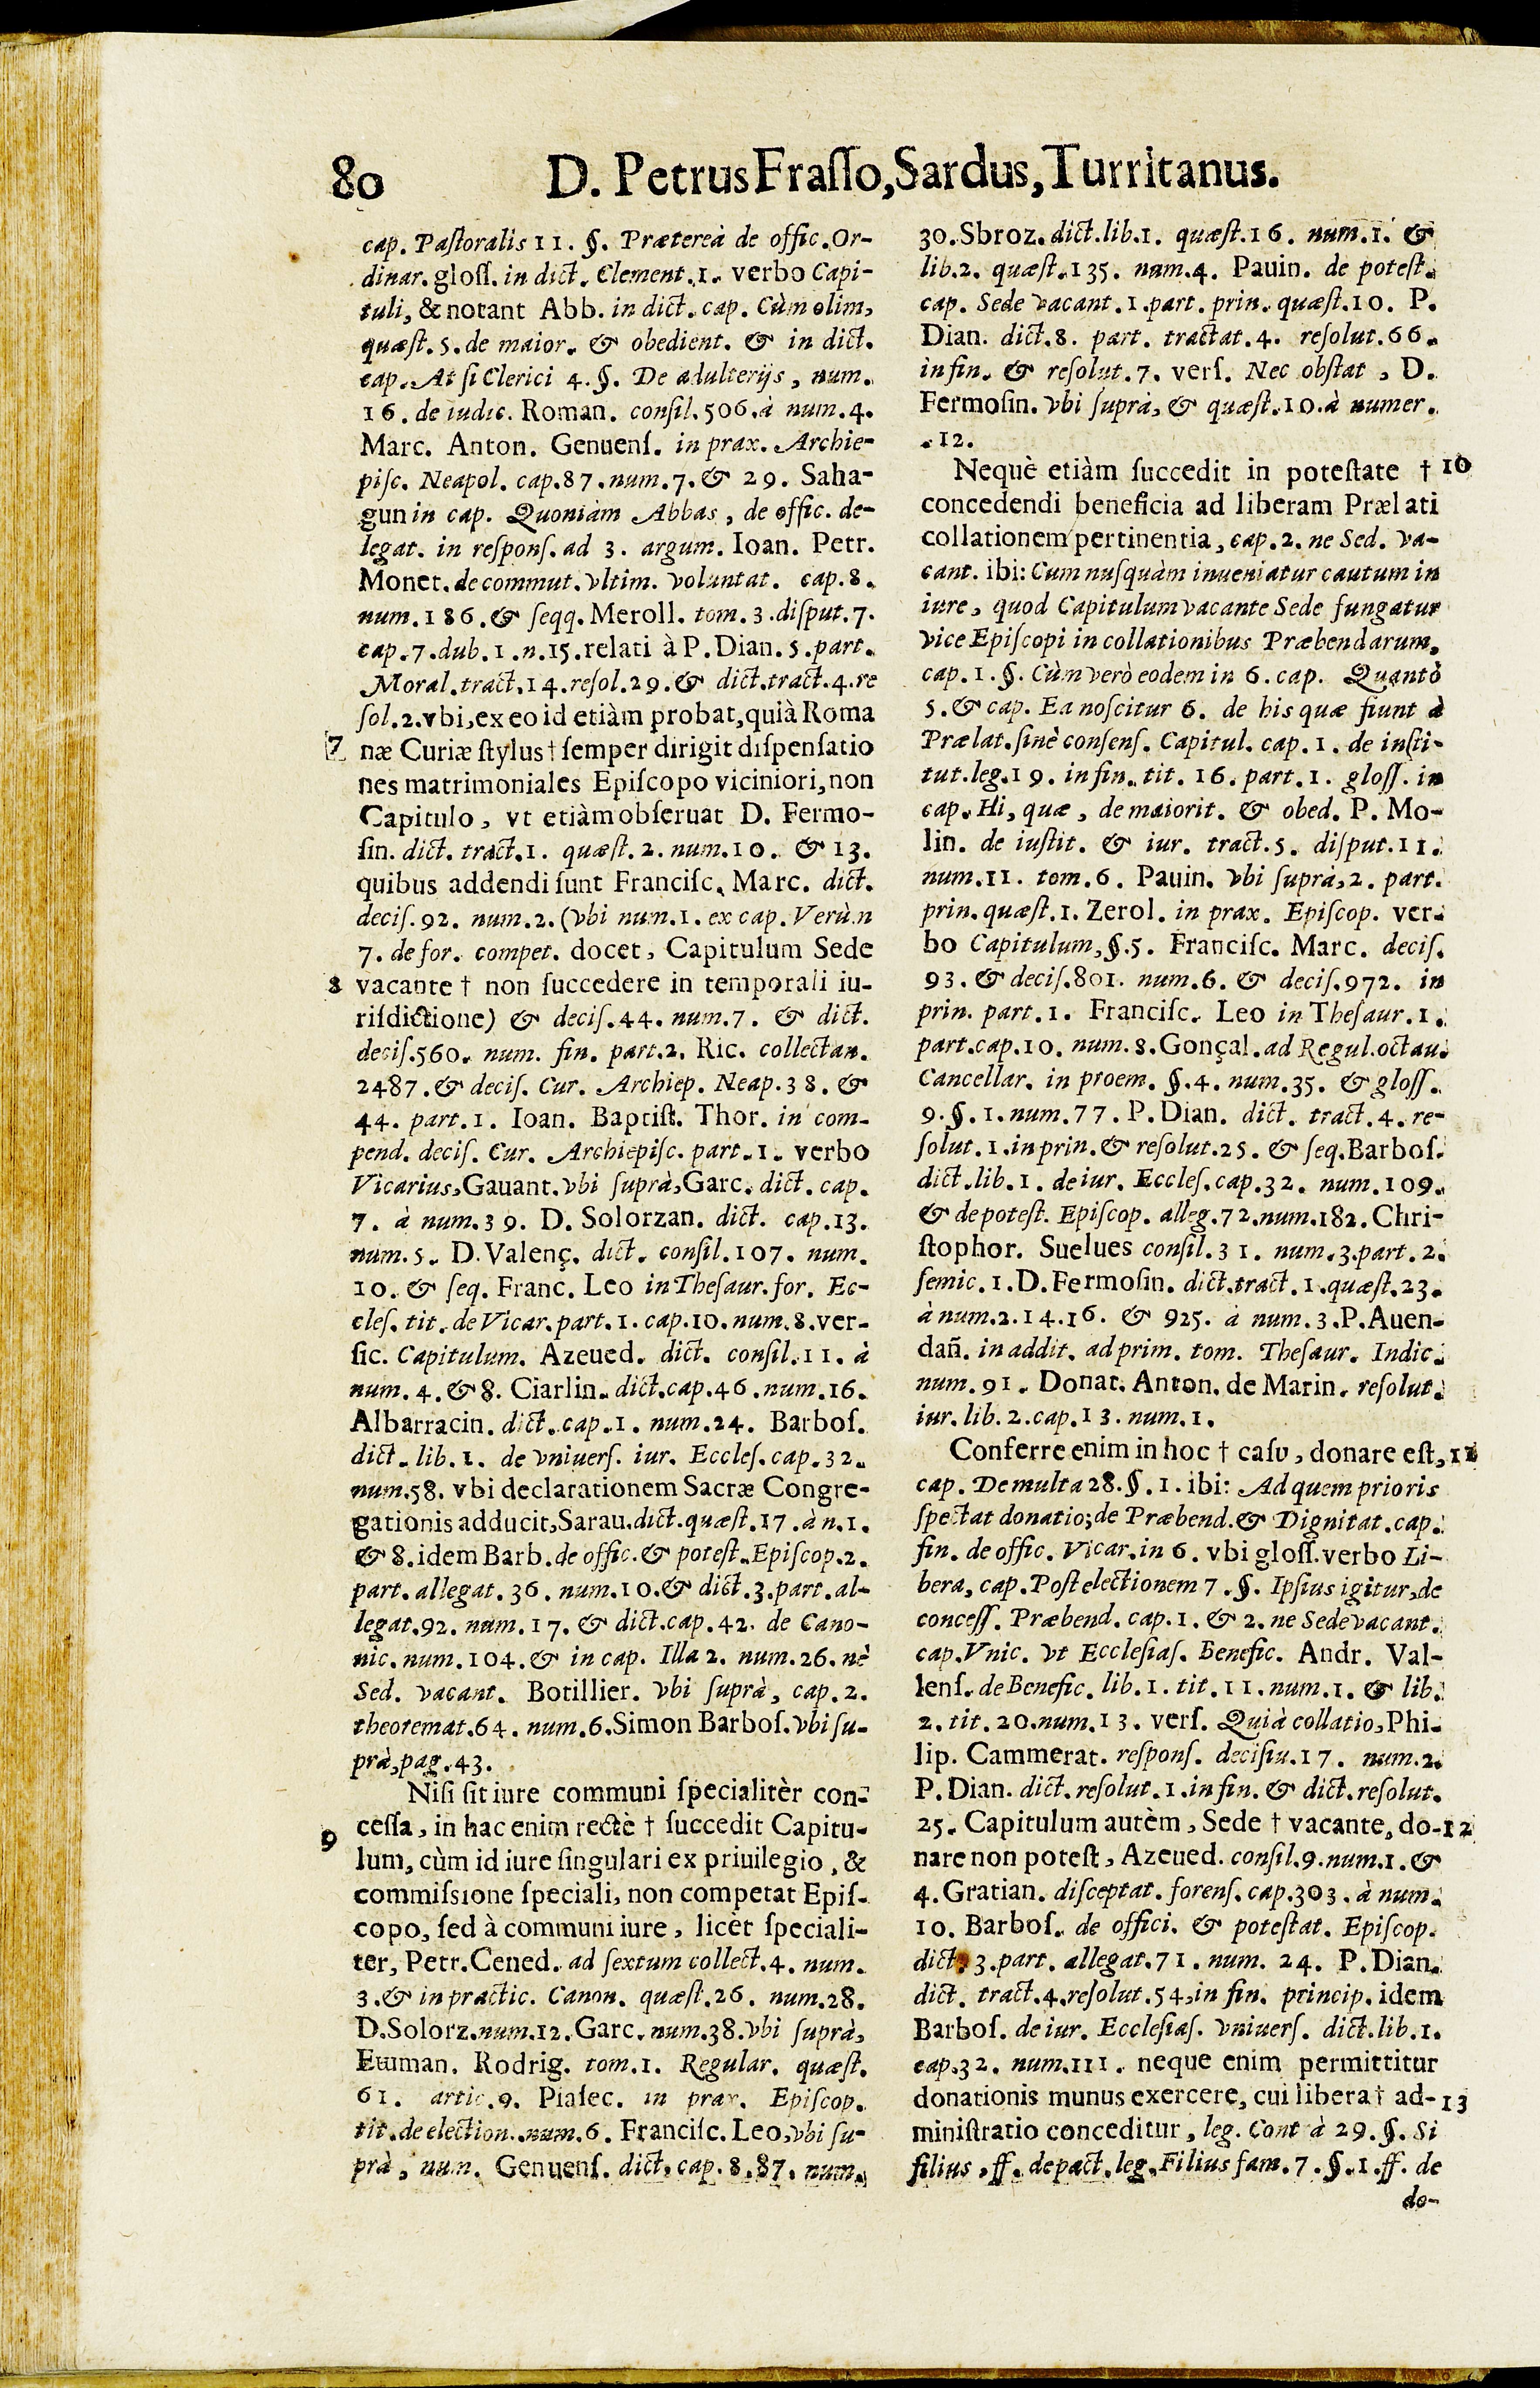 80
D. Petrus Fraſſo, Sardus, Turritanus.
cap. Paſtoralis 11. §. Prætereà de offic. Or-
dinar. gloſſ. in dict. Clement. 1. verbo Capi-
tuli, & notant Abb. in dict. cap. Cùm olim,
quæſt. 5. de maior. & obedient. & in dict.
cap. At ſi Clerici 4. §. De adulterijs, num.
16. de iudic. Roman. conſil. 506. à num. 4.
Marc. Anton. Genuenſ. in prax. Archie-
piſc. Neapol. cap. 87. num. 7. & 29. Saha-
gun in cap. Quoniàm Abbas, de offic. de-
legat. in reſponſ. ad 3. argum. Ioan. Petr.
Monet. de commut. vltim. voluntat. cap. 8.
num. 186. & ſeqq. Meroll. tom. 3. diſput. 7.
cap. 7. dub. 1. n. 15. relati à P. Dian. 5. part.
Moral. tract. 14. reſol. 29. & dict. tract. 4. re
ſol. 2. vbi, ex eo id etiàm probat, quià Roma
7 næ Curiæ ſtylus † ſemper dirigit diſpenſatio
nes matrimoniales Epiſcopo viciniori, non
Capitulo, vt etiàm obſeruat D. Fermo-
ſin. dict. tract. 1. quæſt. 2. num. 10. & 13.
quibus addendi ſunt Franciſc. Marc. dict.
deciſ. 92. num. 2. (vbi num. 1. ex cap. Verùm
7. de for. compet. docet, Capitulum Sede
8 vacante † non ſuccedere in temporali iu-
riſdictione) & deciſ. 44. num. 7. & dict.
deciſ. 560. num. fin. part. 2. Ric. collectan.
2487. & deciſ. Cur. Archiep. Neap. 38. &
44. part. 1. Ioan. Baptiſt. Thor. in com-
pend. deciſ. Cur. Archiepiſc. part. 1. verbo
Vicarius, Gauant. vbi ſuprà, Garc. dict. cap.
7. à num. 39. D. Solorzan. dict. cap. 13.
num. 5. D. Valenç. dict. conſil. 107. num.
10. & ſeq. Franc. Leo in Theſaur. for. Ec-
cleſ. tit. de Vicar. part. 1. cap. 10. num. 8. ver-
ſic. Capitulum. Azeued. dict. conſil. 11. à
num. 4. & 8. Ciarlin. dict. cap. 46. num. 16.
Albarracin. dict. cap. 1. num. 24. Barboſ.
dict. lib. 1. de vniuerſ. iur. Eccleſ. cap. 32.
num. 58. vbi declarationem Sacræ Congre-
gationis adducit, Sarau. dict. quæſt. 17. à n. 1.
& 8. idem Barb. de offic. & poteſt. Epiſcop. 2.
part. allegat. 36. num. 10. & dict. 3. part. al-
legat. 92. num. 17. & dict. cap. 42. de Cano-
nic. num. 104. & in cap. Illa 2. num. 26. nè
Sed. vacant. Botillier. vbi ſuprà, cap. 2.
theoremat. 64. num. 6. Simon Barboſ. vbi ſu-
prà, pag. 43.
Niſi ſit iure communi ſpecialitèr con-
9 ceſſa, in hac enim rectè † ſuccedit Capitu-
lum, cùm id iure ſingulari ex priuilegio, &
commiſsione ſpeciali, non competat Epiſ-
copo, ſed à communi iure, licèt ſpeciali-
ter, Petr. Cened. ad ſextum collect. 4. num.
3. & in practic. Canon. quæſt. 26. num. 28.
D. Solorz. num. 12. Garc. num. 38. vbi ſuprà,
Emman. Rodrig. tom. 1. Regular. quæſt.
61. artic. 9. Piaſec. in prax. Epiſcop.
tit. de election. num. 6. Franciſc. Leo, vbi ſu-
prà, num. Genuenſ. dict. cap. 8. 87. num.
30. Sbroz. dict. lib. 1. quæſt. 16. num. 1. &
lib. 2. quæſt. 135. num. 4. Pauin. de poteſt.
cap. Sede vacant. 1. part. prin. quæſt. 10. P.
Dian. dict. 8. part. tractat. 4. reſolut. 66.
in fin. & reſolut. 7. verſ. Nec obſtat, D.
Fermoſin. vbi ſuprà, & quæſt. 10. à numer.
12.
Nequè etiàm ſuccedit in poteſtate † 10
concedendi beneficia ad liberam Prælati
collationem pertinentia, cap. 2. ne Sed. va-
cant. ibi: Cum nuſquàm inueniatur cautum in
iure, quod Capitulum vacante Sede fungatur
vice Epiſcopi in collationibus Præbendarum.
cap. 1. §. Cùm verò eodem in 6. cap. Quantò
5. & cap. Ea noſcitur 6. de his quæ fiunt à
Prælat. ſinè conſenſ. Capitul. cap. 1. de inſti-
tut. leg. 19. in fin. tit. 16. part. 1. gloſſ. in
cap. Hi, quæ, de maiorit. & obed. P. Mo-
lin. de iuſtit. & iur. tract. 5. diſput. 11.
num. 11. tom. 6. Pauin. vbi ſuprà, 2. part.
prin. quæſt. 1. Zerol. in prax. Epiſcop. ver-
bo Capitulum, §. 5. Franciſc. Marc. deciſ.
93. & deciſ. 801. num. 6. & deciſ. 972. in
prin. part. 1. Franciſc. Leo in Theſaur. 1.
part. cap. 10. num. 8. Gonçal. ad Regul. octau.
Cancellar. in proem. §. 4. num. 35. & gloſſ.
9. §. 1. num. 77. P. Dian. dict. tract. 4. re-
ſolut. 1. in prin. & reſolut. 25. & ſeq. Barboſ.
dict. lib. 1. de iur. Eccleſ. cap. 32. num. 109.
& de poteſt. Epiſcop. alleg. 72. num. 182. Chri-
ſtophor. Suelues conſil. 31. num. 3. part. 2.
ſemic. 1. D. Fermoſin. dict. tract. 1. quæſt. 23.
à num. 2. 14. 16. & 925. à num. 3. P. Auen-
dañ. in addit. ad prim. tom. Theſaur. Indic.
num. 91. Donat. Anton. de Marin. reſolut.
iur. lib. 2. cap. 13. num. 1.
Conferre enim in hoc † caſu, donare eſt, 11
cap. De multa 28. §. 1. ibi: Ad quem prioris
ſpectat donatio; de Præbend. & Dignitat. cap.
fin. de offic. Vicar. in 6. vbi gloſſ. verbo Li-
bera, cap. Poſt electionem 7. §. Ipſius igitur, de
conceſſ. Præbend. cap. 1. & 2. ne Sede vacant.
cap. Vnic. vt Eccleſiaſ. Benefic. Andr. Val-
lenſ. de Benefic. lib. 1. tit. 11. num. 1. & lib.
2. tit. 20. num. 13. verſ. Quià collatio, Phi-
lip. Cammerat. reſponſ. deciſiu. 17. num. 2.
P. Dian. dict. reſolut. 1. in fin. & dict. reſolut.
25. Capitulum autèm, Sede † vacante, do- 12
nare non poteſt, Azeued. conſil. 9. num. 1. &
4. Gratian. diſceptat. forenſ. cap. 303. à num.
10. Barboſ. de offici. & poteſtat. Epiſcop.
dict. 3. part. allegat. 71. num. 24. P. Dian.
dict. tract. 4. reſolut. 54. in fin. princip. idem
Barboſ. de iur. Eccleſiaſ. vniuerſ. dict. lib. 1.
cap. 32. num. 111. neque enim permittitur
donationis munus exercere, cui libera † ad- 13
miniſtratio conceditur, leg. Cont à 29. §. Si
filius, ff. de pact. leg. Filius fam. 7. §. 1. ff. de
do-